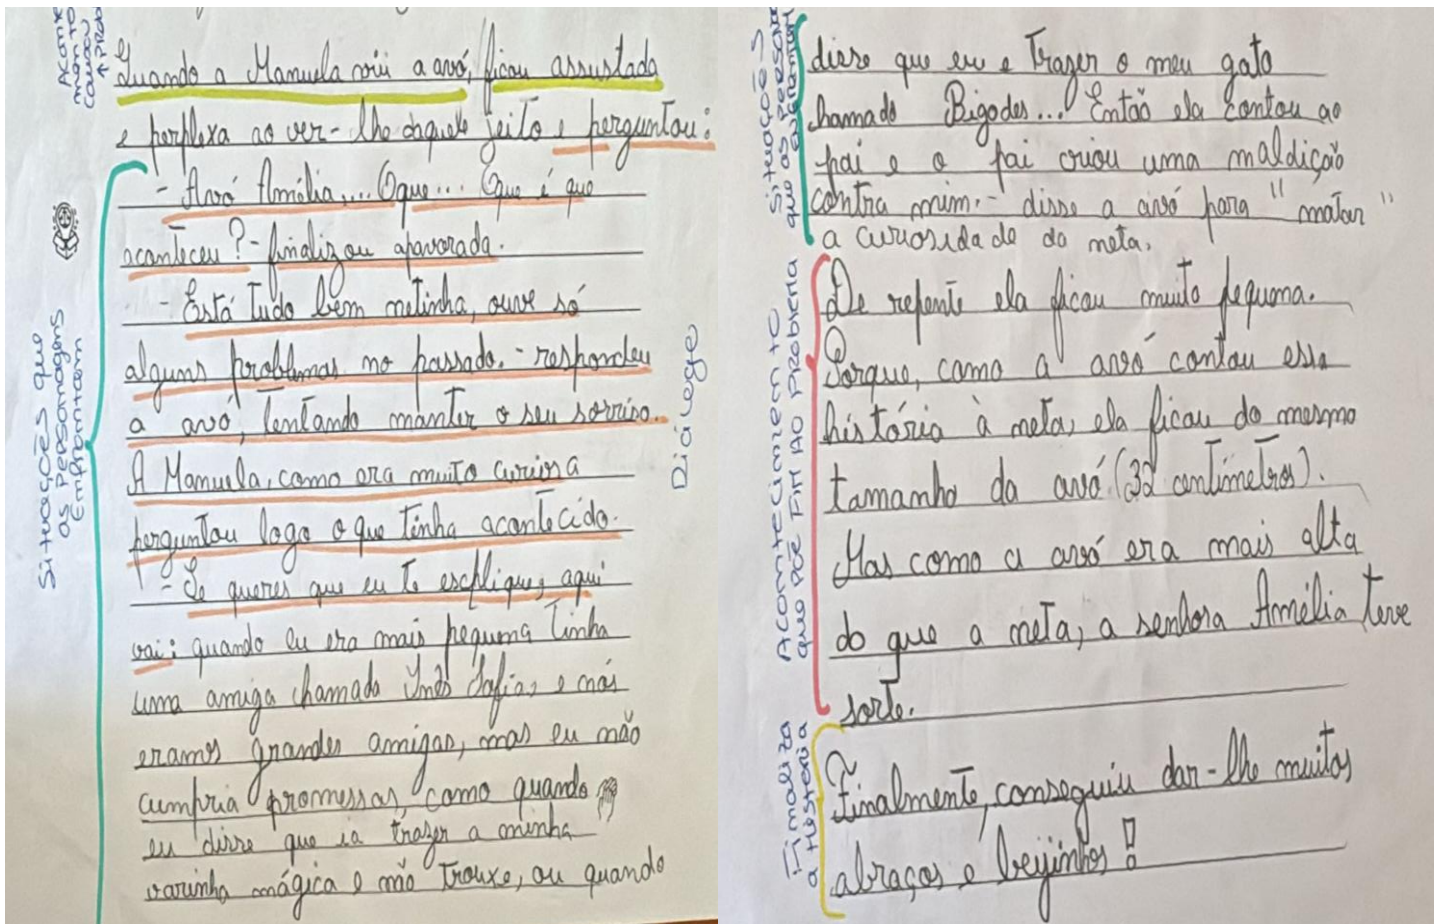 Quando a Manuela viu a avó, ficou assustada
e perplexa ao ver-lhe daquele jeito e perguntou:
- Avó Amélia.... Oque... Oque é que
aconteceu? - finalizou apavorada.
- Está tudo bem netinha, ouve só
alguns problemas no passado. - respondeu
a avó, tentando manter o seu sorriso.
A Manuela, como era muito curiosa
perguntou logo o que tinha acontecido.
- Se queres que eu te esplique, aqui
vai: quando eu era mais pequena tinha
uma amiga chamada Inês Sofia, e nós
eramos grandes amigas, mas eu não
cumpria promessas, como quando
eu disse que ia trazer a minha
varinha mágica e não trouxe, ou quando
Situações que
as personagens
Enfrontam
Diálogo
disse que eu e trazer o meu gato
chamado Bigodes... Então ela contou ao
pai e o pai criou uma maldição
contra mim. - disse a avó para "matar"
a curiosidade da neta.
De repente ela ficou muito pequena.
Porque, como a avó contou essa
história à neta, ela ficou do mesmo
tamanho da avó (32 centímetros).
Mas como a avó era mais alta
do que a neta, a senhora Amélia teve
sorte.
Finalmente, conseguiu dar-lhe muitos
abraços e beijinhos!
Situações
que as
Acontecimento
que põe fim ao problema
Finaliza
a história